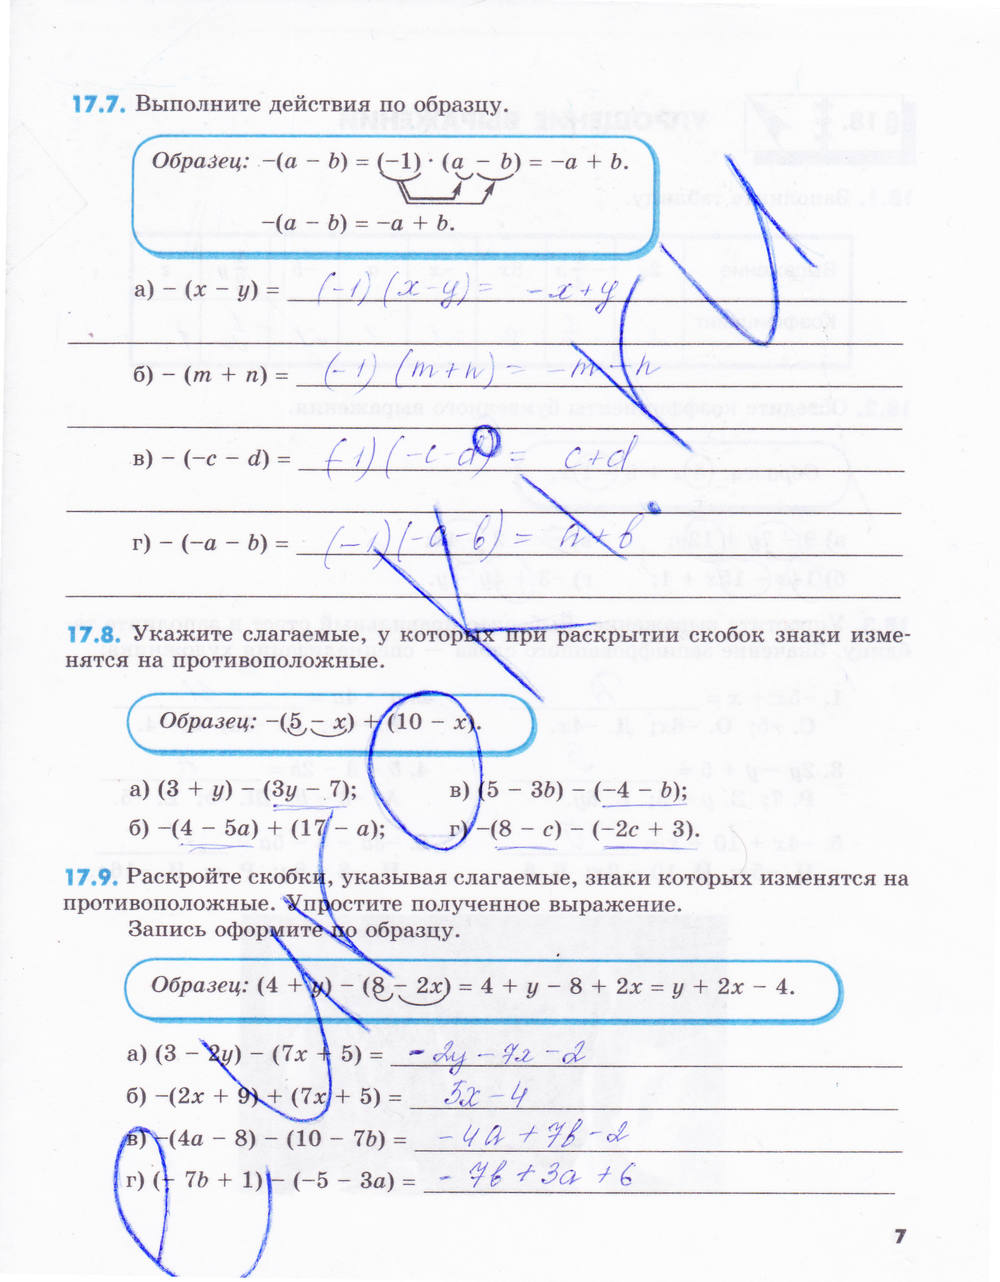 17.7. Выполните действия по образцу.
Образец: −(a − b) = (−1) · (a − b) = −a + b.
−(a − b) = −a + b.
а) − (x − y) = (-1) (x-y) = -x+y
б) − (m + n) = (-1) (m+n) = -m-n
в) − (−c − d) = (-1) (-c-d) = c+d
г) − (−a − b) = (-1) (-a-b) = a+b
17.8. Укажите слагаемые, у которых при раскрытии скобок знаки изме-
нятся на противоположные.
Образец: −(5 − x) + (10 − x).
а) (3 + y) − (3y − 7); в) (5 − 3b) − (−4 − b);
б) −(4 − 5a) + (17 − a); г) −(8 − c) − (−2c + 3).
17.9. Раскройте скобки, указывая слагаемые, знаки которых изменятся на
противоположные. Упростите полученное выражение.
Запись оформите по образцу.
Образец: (4 + y) − (8 − 2x) = 4 + y − 8 + 2x = y + 2x − 4.
а) (3 − 2y) − (7x + 5) = -2y-7x-2
б) −(2x + 9) + (7x + 5) = 5x-4
в) −(4a − 8) − (10 − 7b) = -4a+7b-2
г) (− 7b + 1) − (−5 − 3a) = -7b+3a+6
7